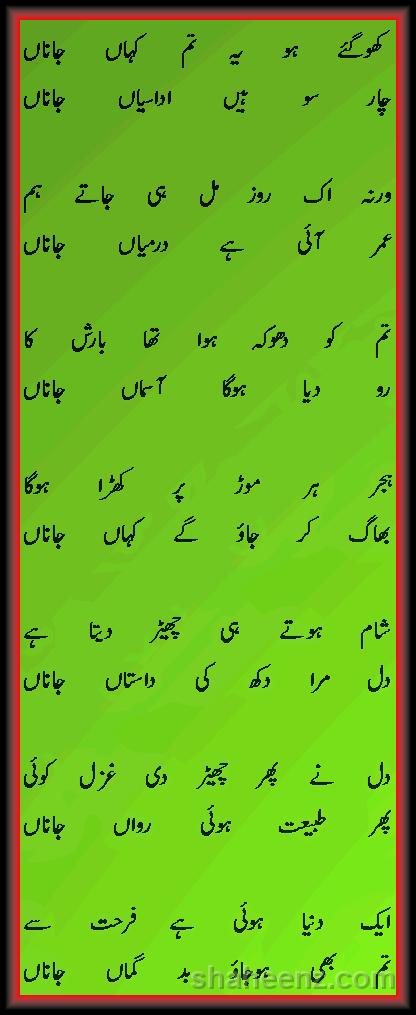 کھوگئے ہو یہ تم کہاں جاناں
چار سو ہیں اداسیاں جاناں
ورنہ اک روز مل ہی جاتے ہم
عمر آئی ہے درمیاں جاناں
تم کو دھوکہ ہوا تھا بارش کا
رو دیا ہوگا آسماں جاناں
ہجر ہر موڑ پر کھڑا ہوگا
بھاگ کر جاؤ گے کہاں جاناں
شام ہوتے ہی چھیڑ دیتا ہے
دل مرا دکھ کی داستاں جاناں
دل نے پھر چھیڑ دی غزل کوئی
پھر طبیعت ہوئی رواں جاناں
ایک دنیا ہوئی ہے فرحت سے
تم بھی ہوجاؤ بد گماں جاناں
shaheenz.com